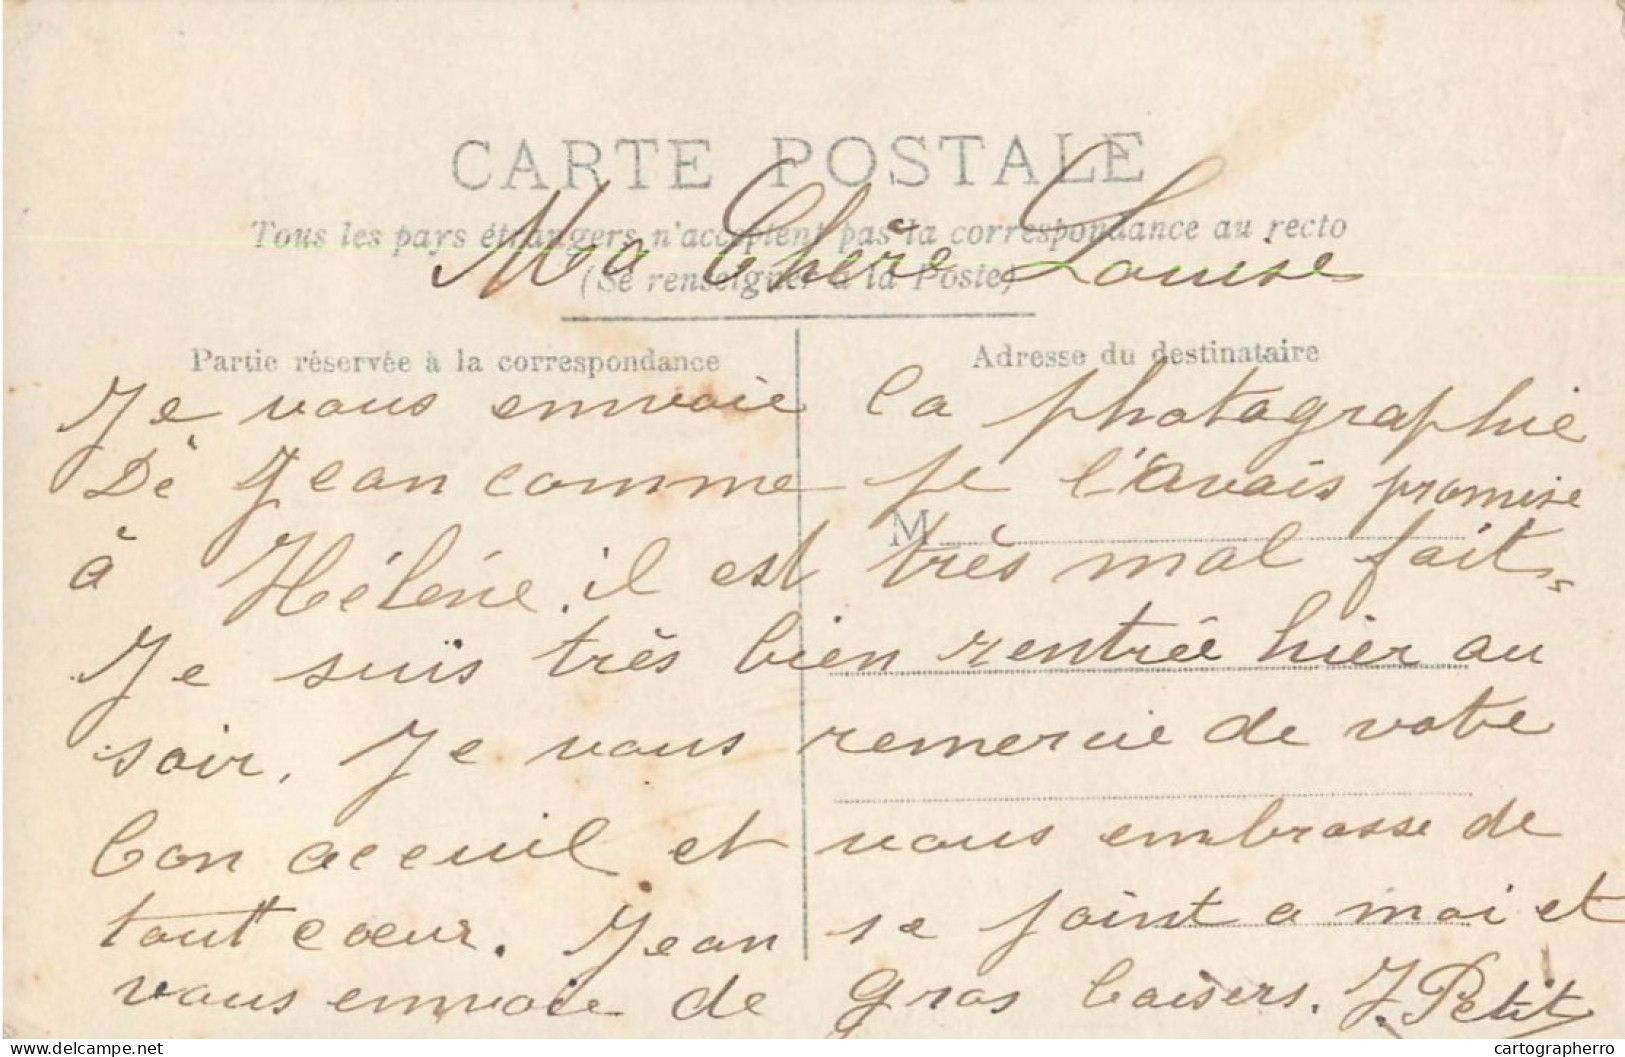 CARTE POSTALE
Tous les pays étrangers n'acceptent pas la correspondance au recto
(Se renseigner à la Poste)
Ma Chère Louise
Partie réservée à la correspondance
Adresse du destinataire
Je vous envoie la photographie
De Jean comme je l'avais promise
M
à Hélène. il est très mal fait.
Je suis très bien rentrée hier au
soir. Je vous remercie de votre
bon acceuil et vous embrasse de
tout cœur. Jean se joint a moi et
vous envoie de gros baisers. J. Petit
delcampe.net
cartographerro